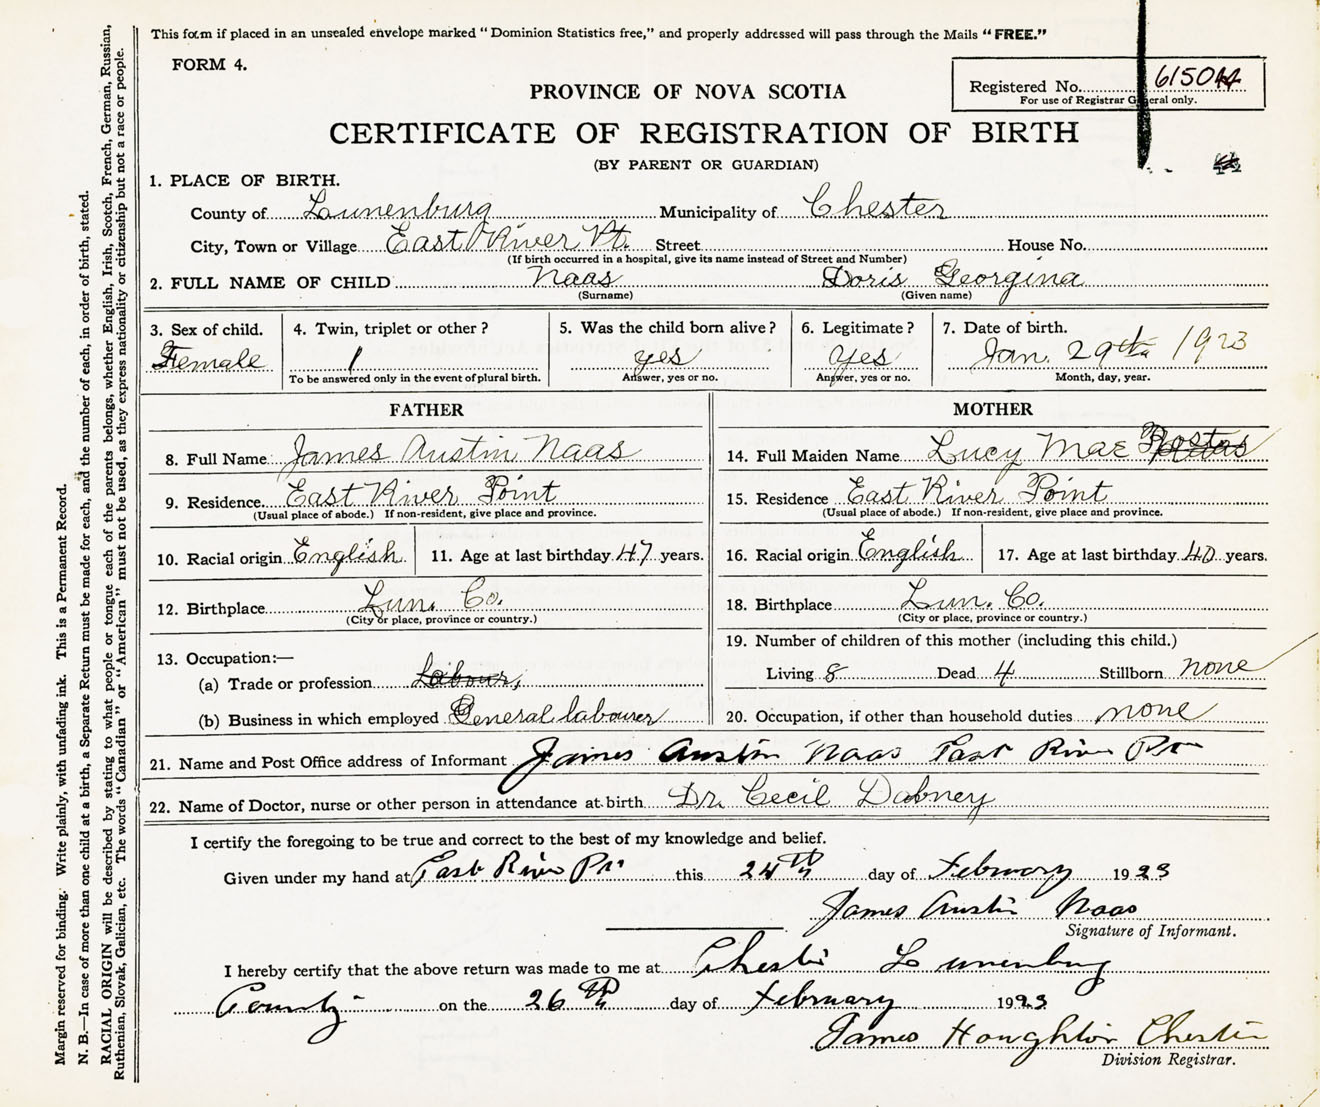 This form if placed in an unsealed envelope marked "Dominion Statistics free," and properly addressed will pass through the Mails "FREE."
FORM 4.
Registered No. 61504
For use of Registrar General only.
PROVINCE OF NOVA SCOTIA
CERTIFICATE OF REGISTRATION OF BIRTH
(BY PARENT OR GUARDIAN)
1. PLACE OF BIRTH.
County of Lunenburg Municipality of Chester
City, Town or Village East River Pt. Street House No.
(If birth occurred in a hospital, give its name instead of Street and Number)
2. FULL NAME OF CHILD Naas Doris Georgina
(Surname) (Given name)
3. Sex of child. 4. Twin, triplet or other? 5. Was the child born alive? 6. Legitimate? 7. Date of birth.
Female 1 yes Yes Jan. 29th 1923
To be answered only in the event of plural birth. Answer, yes or no. Answer, yes or no. Month, day, year.
FATHER MOTHER
8. Full Name James Austin Naas 14. Full Maiden Name Lucy Mae
9. Residence East River Point 15. Residence East River Point
(Usual place of abode.) If non-resident, give place and province. (Usual place of abode.) If non-resident, give place and province.
10. Racial origin English 11. Age at last birthday 47 years. 16. Racial origin English 17. Age at last birthday 40 years.
12. Birthplace Lun. Co. 18. Birthplace Lun. Co.
(City or place, province or country.) (City or place, province or country.)
13. Occupation:— 19. Number of children of this mother (including this child.)
(a) Trade or profession Labour, Living 8 Dead 4 Stillborn none
(b) Business in which employed General labourer 20. Occupation, if other than household duties none
21. Name and Post Office address of Informant James Austin Naas East River Pt
22. Name of Doctor, nurse or other person in attendance at birth Dr. Cecil Dabney
I certify the foregoing to be true and correct to the best of my knowledge and belief.
Given under my hand at East River Pt this 24th day of February 1923
James Austin Naas
Signature of Informant.
I hereby certify that the above return was made to me at Chester Lunenburg
County on the 26th day of February 1923
James Houghton Chester
Division Registrar.
Margin reserved for binding. Write plainly, with unfading ink. This is a Permanent Record.
N. B.—In case of more than one child at a birth, a Separate Return must be made for each, and the number of each, in order of birth, stated.
RACIAL ORIGIN will be described by stating to what people or tongue each of the parents belongs, whether English, Irish, Scotch, French, German, Russian,
Ruthenian, Slovak, Galician, etc. The words "Canadian" or "American" must not be used, as they express nationality or citizenship but not a race or people.